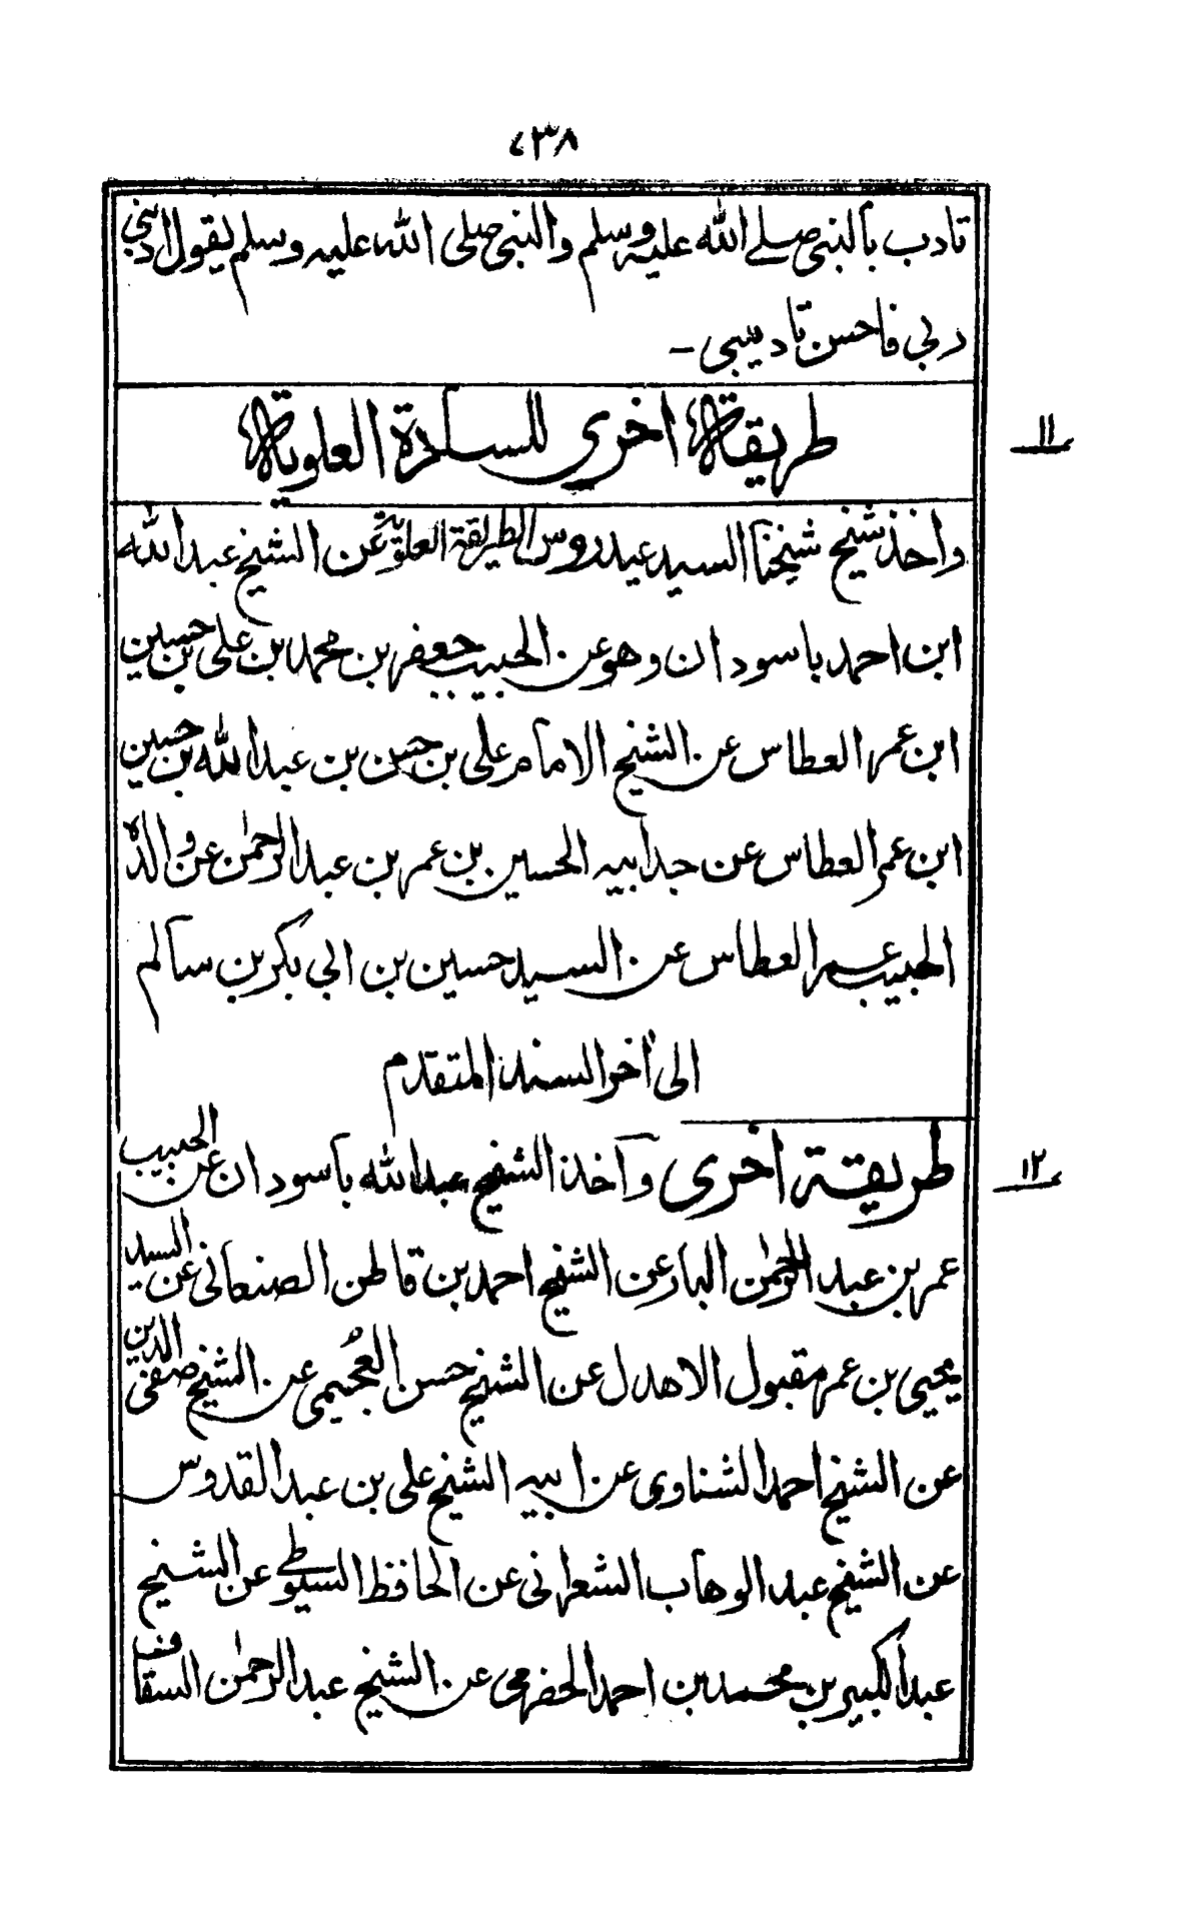 ٢٣٨
تادب بالنبي صلے الله عليه وسلم والنبي صلى الله عليه وسلم يقول ادبني
ربي فاحسن تاديبي -
١١
طريقة اخرى للسادة العلوية
واخذ شيخ شيخنا السيد عيدروس الطريقة العلوية عن الشيخ عبد الله
ابن احمد باسودان وهو عن الحبيب جعفر بن محمد بن علي بن حسين
ابن عمر العطاس عن الشيخ الامام علي بن حسن بن عبد الله بن حسين
ابن عمر العطاس عن جد ابيه الحسين بن عمر بن عبد الرحمٰن عن والده
الحبيب عمر العطاس عن السيد حسين بن ابي بكر بن سالم
الى أخر السند المتقدم
١٢
طريقة اخرى واخذ الشيخ عبد الله باسودان عن الحبيب
عمر بن عبد الرحمٰن البار عن الشيخ احمد بن قاطن الصنعاني عن السيد
يحيى بن عمر مقبول الاهدل عن الشيخ حسن العُجيمي عن الشيخ صفي الدين
عن الشيخ احمد الشناوي عن ابيه الشيخ علي بن عبد القدوس
عن الشيخ عبد الوهاب الشعراني عن الحافظ السيوطي عن الشيخ
عبد الكبير بن محمد بن احمد الحضرمي عن الشيخ عبد الرحمٰن السقاف